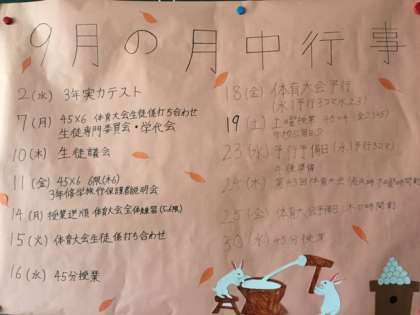 9月の月中行事
2(水) 3年実力テスト
7(月) 45×6 体育大会生徒係打ち合わせ
生徒専門委員会・学代会
10(木) 生徒議会
11(金) 45×6 6限(木6)
3年修学旅行保護者説明会
14(月) 授業逆順 体育大会全体練習(5,6限)
15(火) 体育大会生徒係打ち合わせ
16(水) 45分授業
18(金) 体育大会予行
19(土) 土曜授業
23(水) 予行予備日
24(木) 第33回体育大会
25(金) 体育大会予備日
30(水) 45分授業